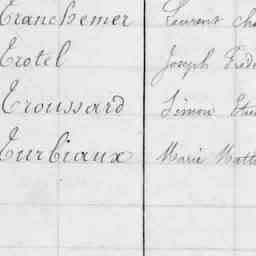 Tranchemer Laurent Cha
Trotel Joseph Fréde
Troussard Simon Etie
Turbiaux Marie Math